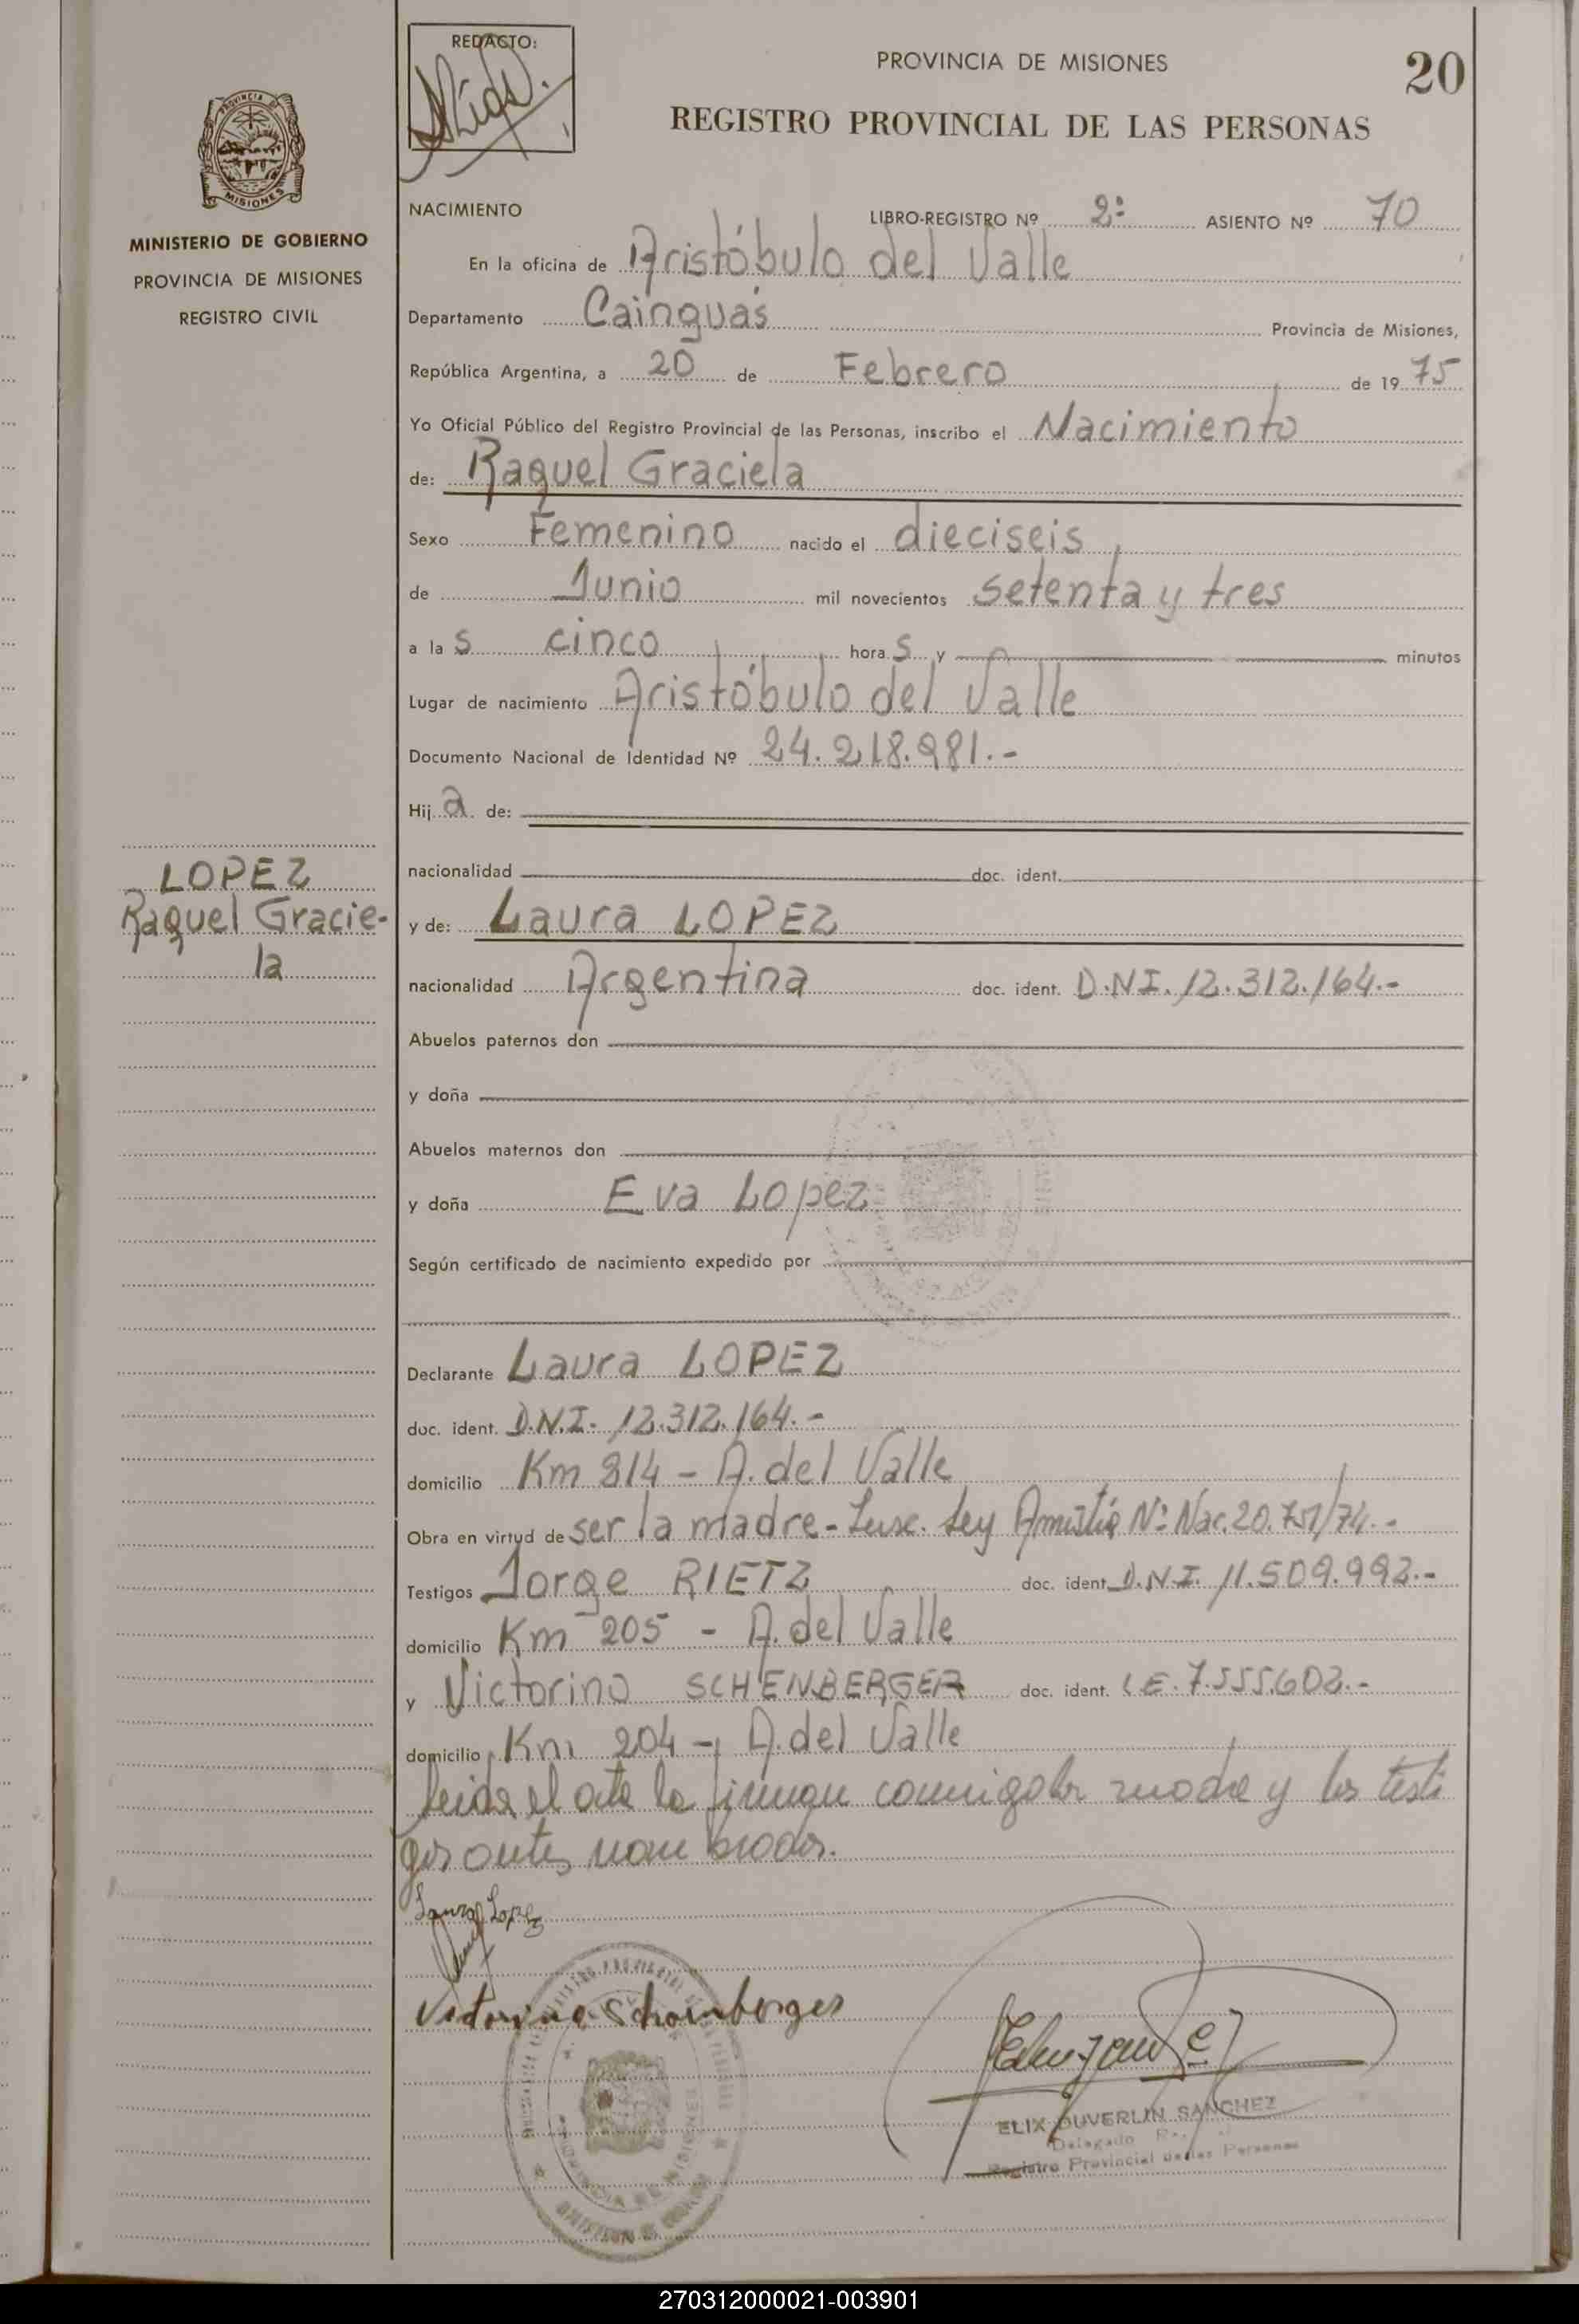 REDACTO:
PROVINCIA DE MISIONES
20
REGISTRO PROVINCIAL DE LAS PERSONAS
PROVINCIA DE
MISIONES
MINISTERIO DE GOBIERNO
PROVINCIA DE MISIONES
REGISTRO CIVIL
NACIMIENTO LIBRO-REGISTRO Nº 2º ASIENTO Nº 70
En la oficina de Aristóbulo del Valle
Departamento Cainguás Provincia de Misiones,
República Argentina, a 20 de Febrero de 1975
Yo Oficial Público del Registro Provincial de las Personas, inscribo el Nacimiento
de: Raquel Graciela
Sexo Femenino nacido el dieciseis
de Junio mil novecientos setenta y tres
a las cinco horas y minutos
Lugar de nacimiento Aristóbulo del Valle
Documento Nacional de Identidad Nº 24.218.981.-
Hija de:
nacionalidad doc. ident.
LOPEZ
Raquel Gracie-
la
y de: Laura LOPEZ
nacionalidad Argentina doc. ident. D.N.I. 12.312.164.-
Abuelos paternos don
y doña
Abuelos maternos don
y doña Eva Lopez
Según certificado de nacimiento expedido por
Declarante Laura LOPEZ
doc. ident. D.N.I. 12.312.164.-
domicilio Km 214 - A. del Valle
Obra en virtud de ser la madre - Ley Amistía Nº Nac. 20.751/74.-
Testigos Jorge RIETZ doc. ident. D.N.I. 11.509.992.-
domicilio Km 205 - A. del Valle
y Victorino SCHENBERGER doc. ident. L.E. 7.555.602.-
domicilio Km 204 - A. del Valle
leida el acta la firman conmigo la madre y los testi
gos antes nombrados.
Laura Lopez
Victorino Schomberger
ELIX DUVERLIN SANCHEZ
Delegado
Registro Provincial de las Personas
270312000021-003901